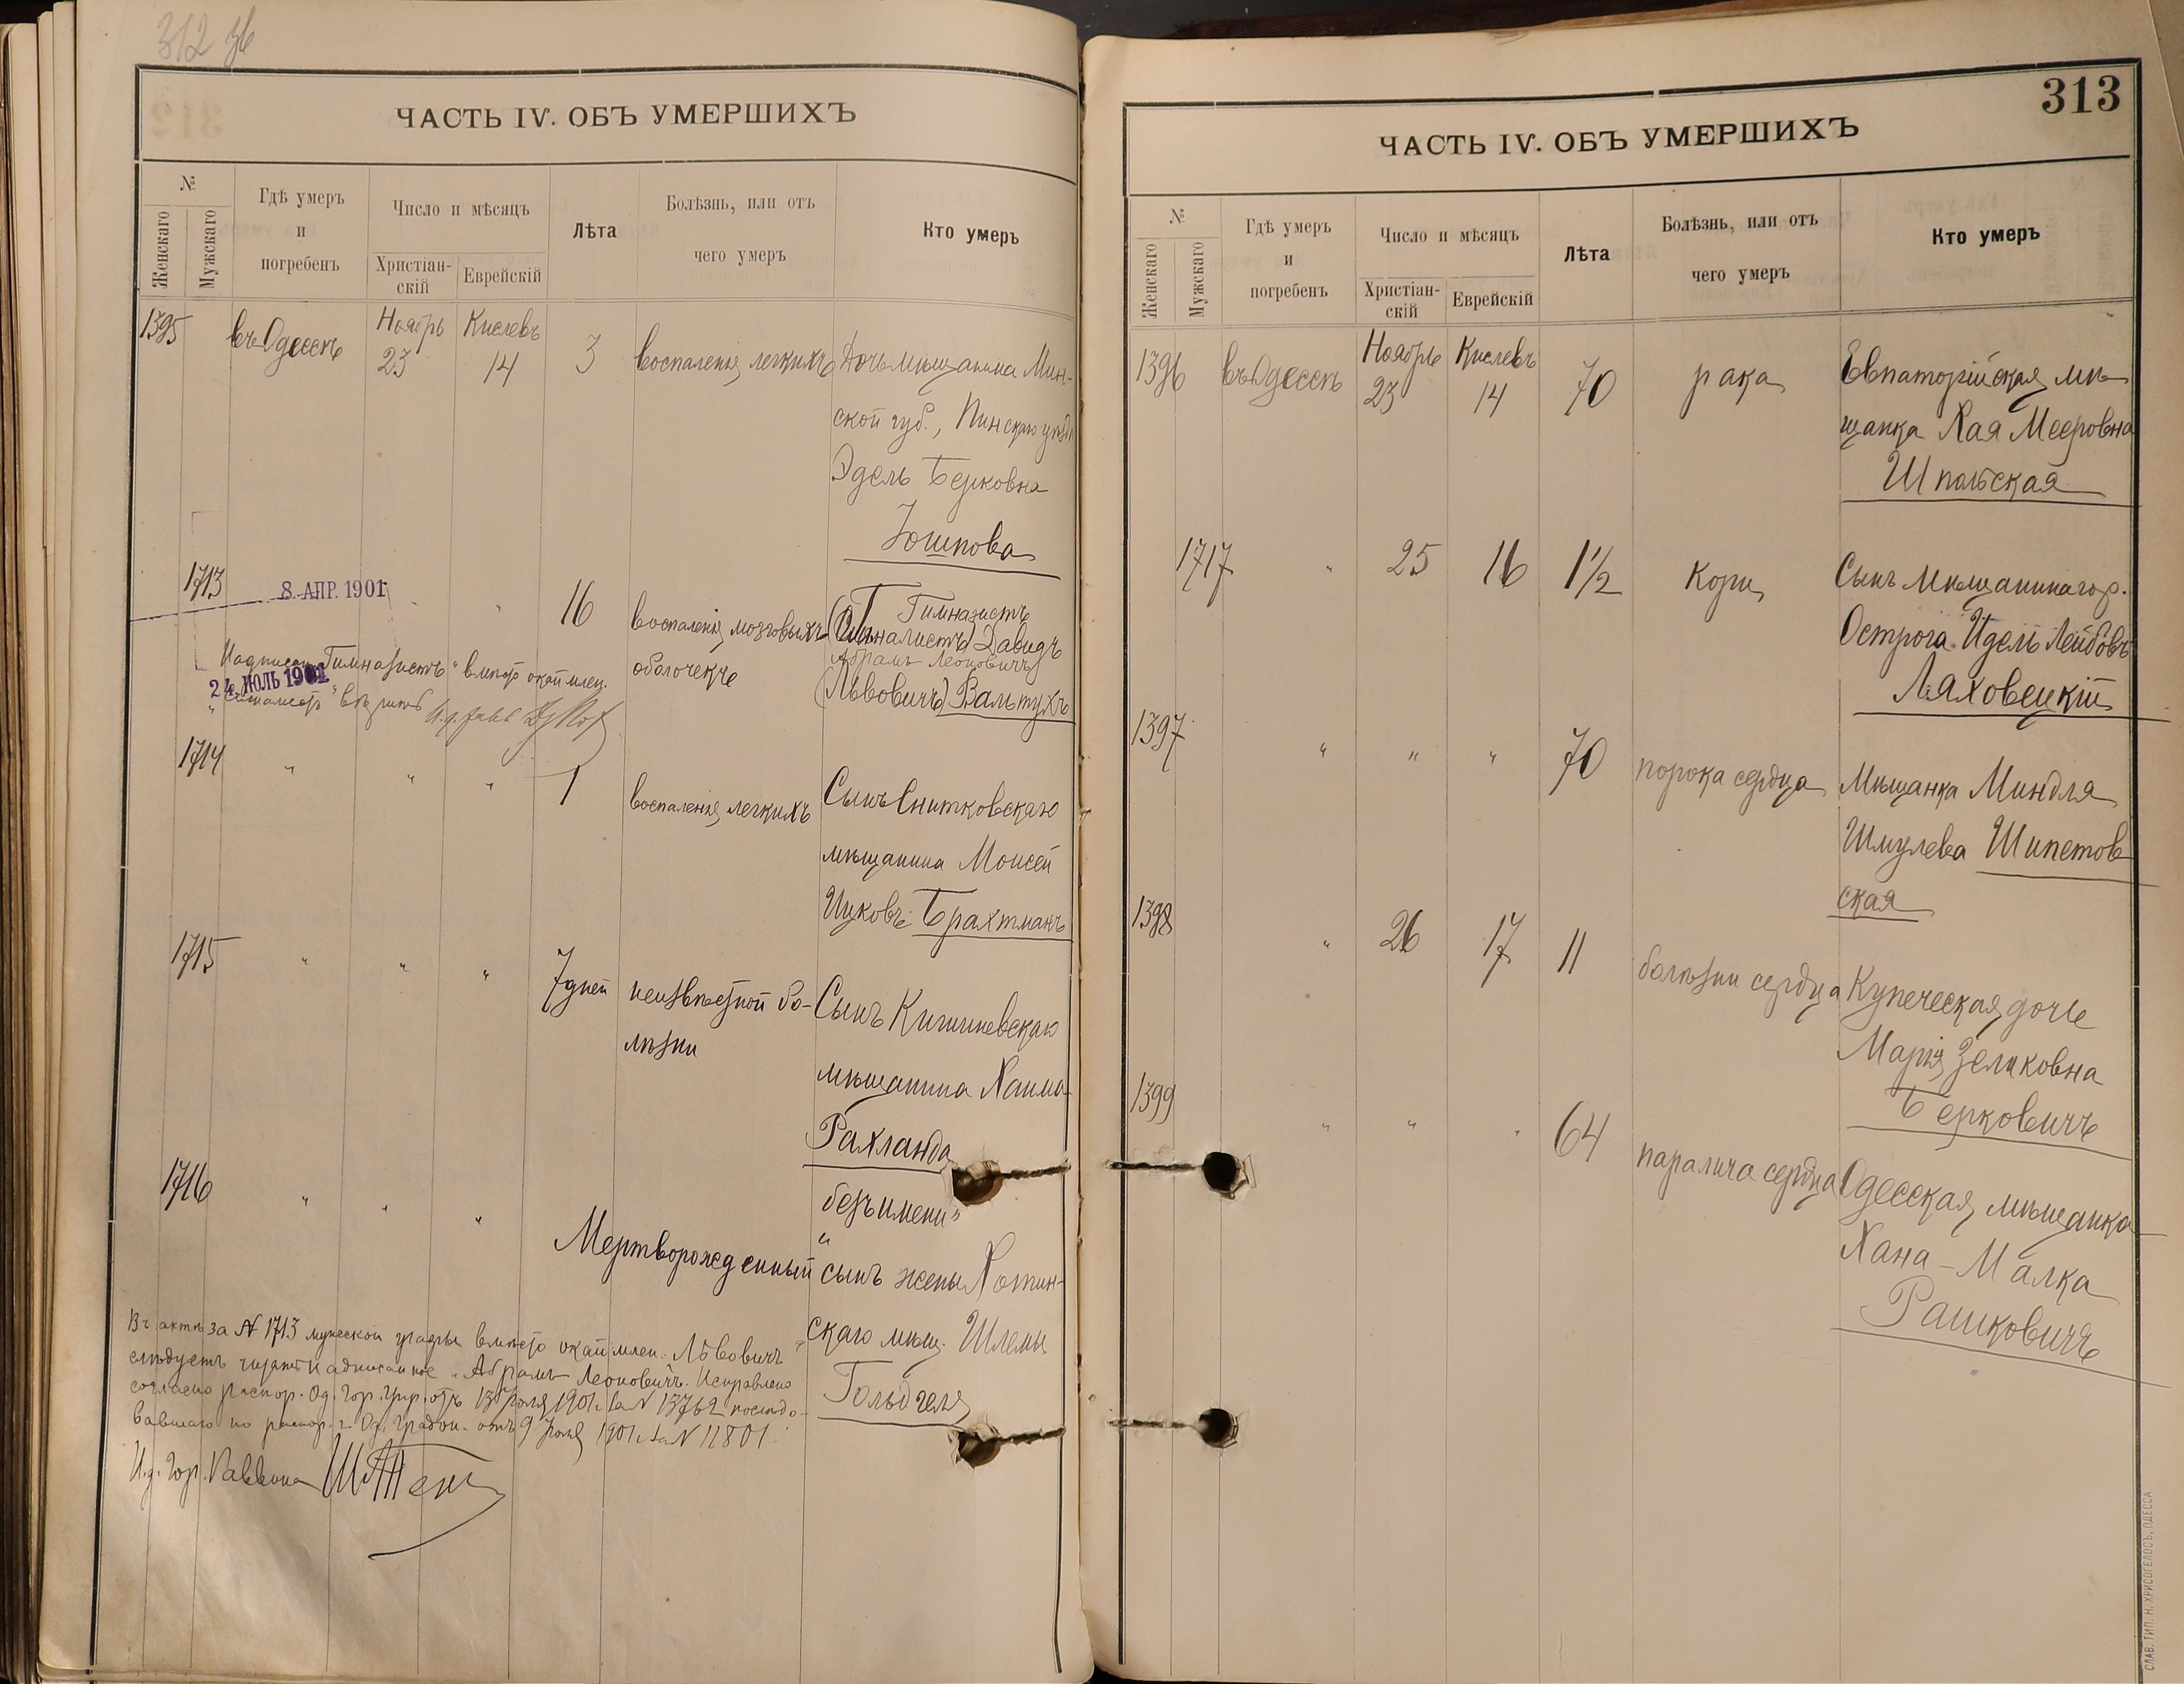 312 об
ЧАСТЬ IV. ОБЪ УМЕРШИХЪ
№
Женскаго
Мужскаго
Гдѣ умеръ
и
погребенъ
Число и мѣсяцъ
Христіан-
скій
Еврейскій
Лѣта
Болѣзнь, или отъ
чего умеръ
Кто умеръ
1395 въ Одессѣ Ноябрь 23 Кислевъ 14 3 воспаленія легкихъ Дочь мѣщанина Мин-
ской губ., Пинскаго уѣзда
Эдель Берковна
Юшпова
1713 8. АПР. 1901 " " 16 воспаленія мозговыхъ Гимназистъ
оболочекъ Давидъ
Абрамъ Леоновичъ
(Львовичъ) Вальтухъ
Надписан. "Гимназистъ" вмѣсто окаймлен.
24 ІЮЛЬ 1901
1714 " " " 1 воспаленія легкихъ Сынъ Снитковскаго
мѣщанина Моисей
Ицковъ Брахтманъ
1715 " " " 7 дней неизвѣстной бо- Сынъ Кишиневскаго
лѣзни мѣщанина Хаима
Рахланда
безъимени"
1716 " " " Мертворожденный "
сынъ жены Хотин-
скаго мѣщ. Шлемы
Гольдгеля
Въ актѣ за № 1713 мужеской графы вмѣсто окаймлен. Львовичъ
слѣдуетъ читать надписанное "Абрамъ Леоновичъ". Исправлено
согласно распор. Од. Гор. Упр. отъ 13 Іюля 1901 г. за № 13762 послѣдо-
вавшаго по распор. г. Од. Градон. отъ 9 Іюля 1901 г. за № 11801.
И.д. Гор. Раввина
313
ЧАСТЬ IV. ОБЪ УМЕРШИХЪ
№
Женскаго
Мужскаго
Гдѣ умеръ
и
погребенъ
Число и мѣсяцъ
Христіан-
скій
Еврейскій
Лѣта
Болѣзнь, или отъ
чего умеръ
Кто умеръ
1396 въ Одессѣ Ноябрь 23 Кислевъ 14 70 рака Евпаторійская мѣ-
щанка Хая Мееровна
Шпольская
1717 " 25 16 1½ Кори Сынъ мѣщанина гор.
Острога Идель Лейбовъ
Ляховецкій
1397 " " " 70 порока сердца Мѣщанка Миндля
Шмулева Шипетов
ская
1398 " 26 17 11 болѣзни сердца Купеческая дочь
Марія Зеликовна
Берковичъ
1399 " " " 64 паралича сердца Одесская мѣщанка
Хана-Малка
Рашковичъ
СЛАВ. ТИП. Н. ХРИСОГЕЛОСЪ, ОДЕССА